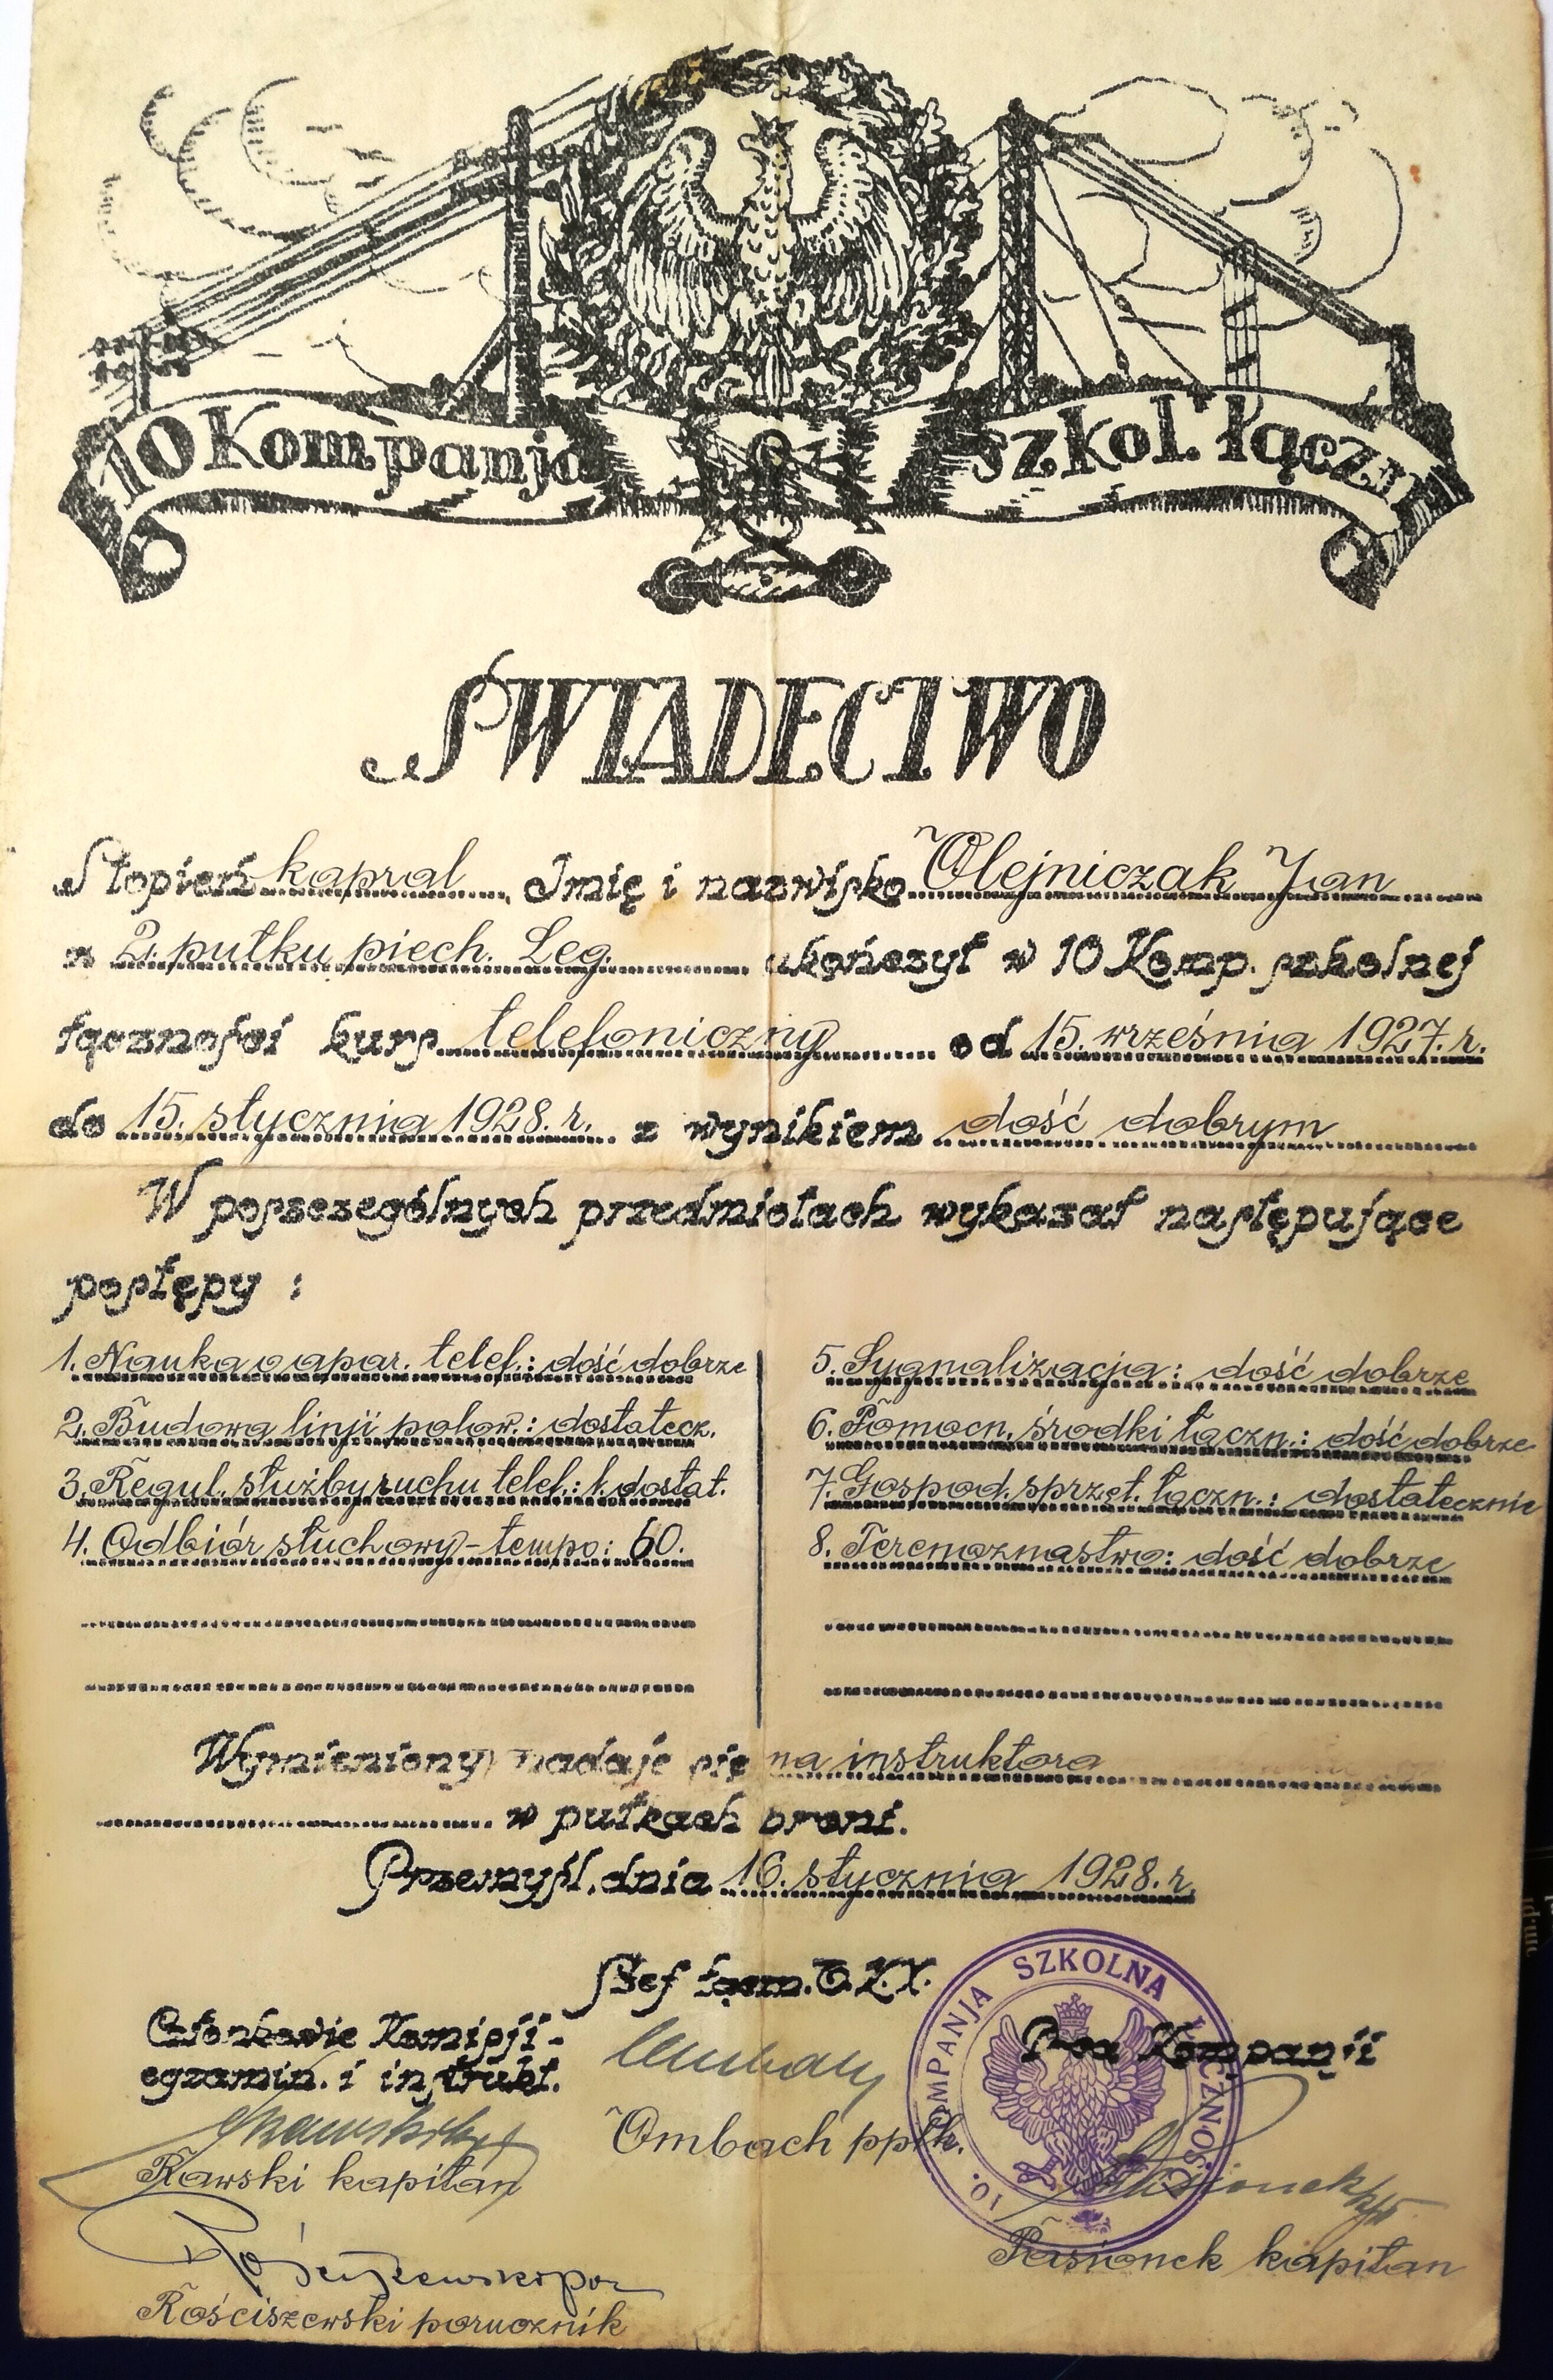 10 Kompanja szkol. łączn.
ŚWIADECTWO
Stopień kapral Imię i nazwisko Olejniczak Jan
z 2. pułku piech. Leg. ukończył w 10 Komp. szkolnej
łączności kurs telefoniczny od 15. września 1927. r.
do 15. stycznia 1928. r. z wynikiem dość dobrym
W poszczególnych przedmiotach wykazał następujące
postępy :
1. Nauka o apar. telef.: dość dobrze
2. Budowa linji polow.: dostatecz.
3. Regul. służby ruchu telef.: b. dostat.
4. Odbiór słuchowy - tempo: 60.
5. Sygnalizacja: dość dobrze
6. Pomocn. środki łączn.: dość dobrze
7. Gospod. sprzęt. łączn.: dostatecznie
8. Terenoznastwo: dość dobrze
Wymieniony nadaje się na instruktora
w pułkach broni.
Przemyśl, dnia 16. stycznia 1928. r.
Szef łączn. O.K.X.
Ombach ppłk.
Członkowie Komisji
egzamin. i instrukt.
Rawski kapitan
Rościszewski porucznik
Dca Kompanji
10. KOMPANJA SZKOLNA ŁĄCZNOŚCI
Pasionek kapitan